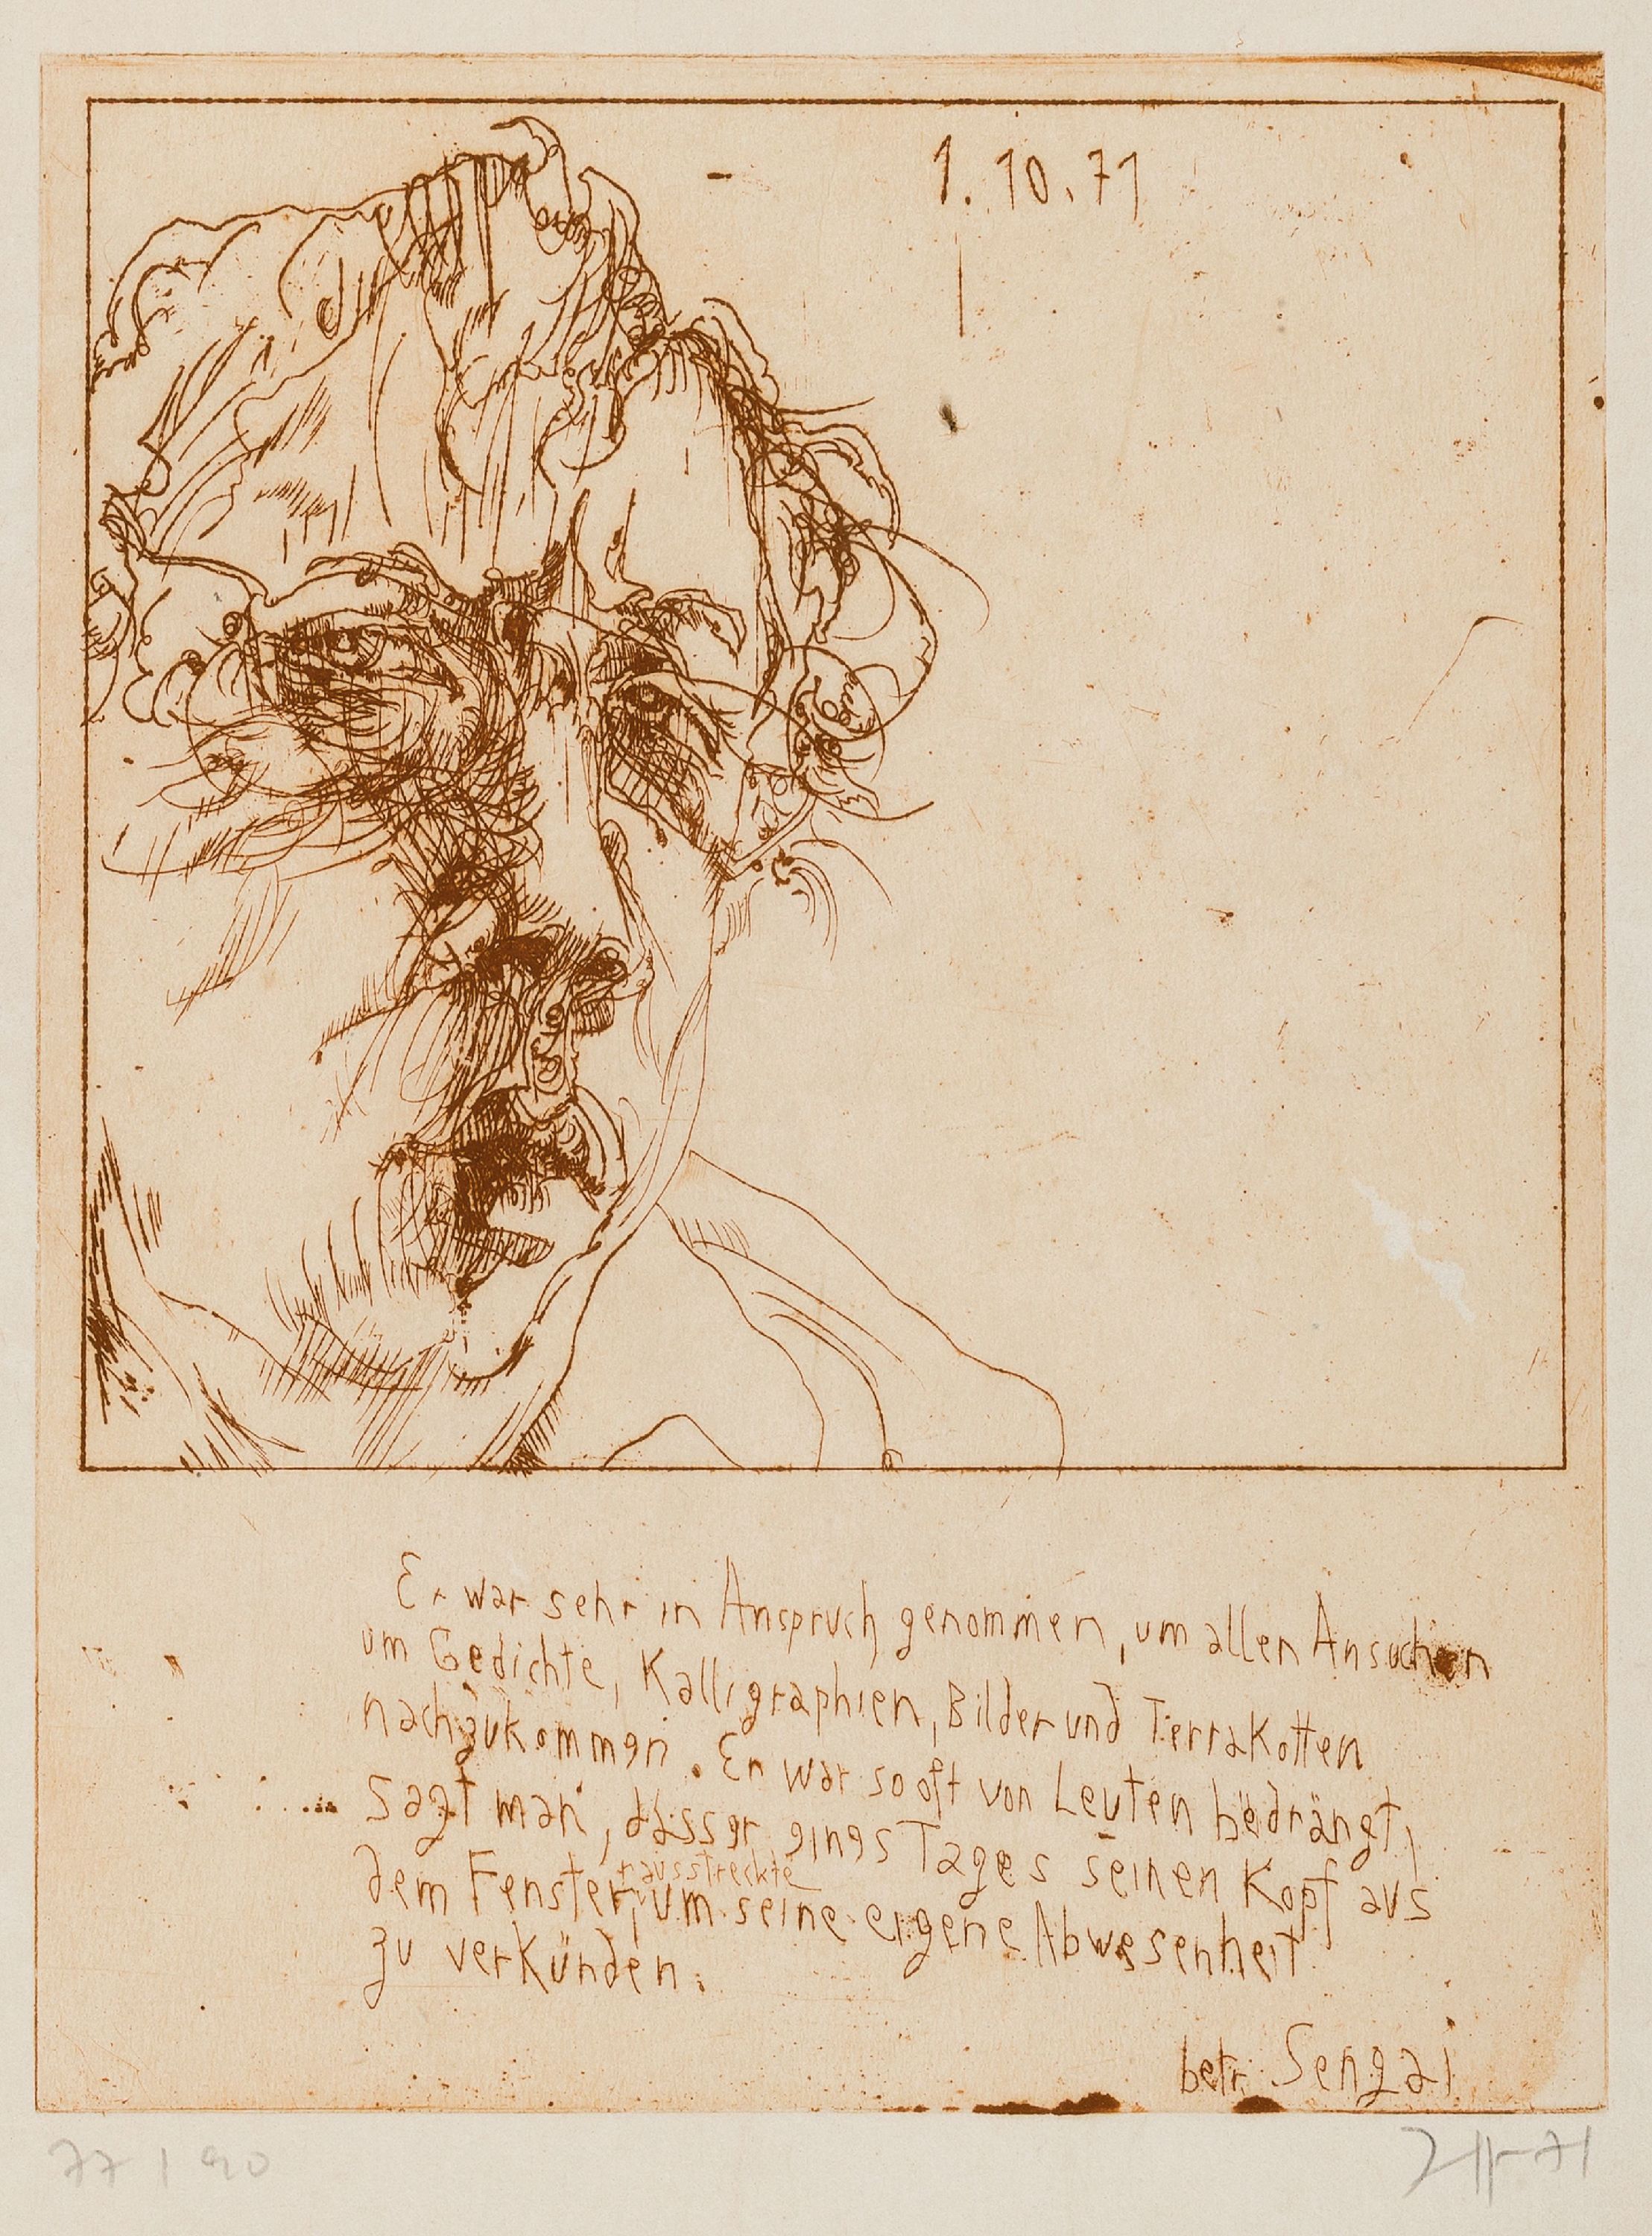 1. 10. 71
Er war sehr in Anspruch genommen, um allen Ansuchen
um Gedichte, Kalligraphien, Bilder und Terrakotten
nachzukommen. Er war so oft von Leuten bedrängt,
sagt man, dasser eines Tages seinen Kopf aus
rausstreckte
dem Fenster, um seine eigene Abwesenheit
zu verkünden.
betr. Sengai
77/90
71